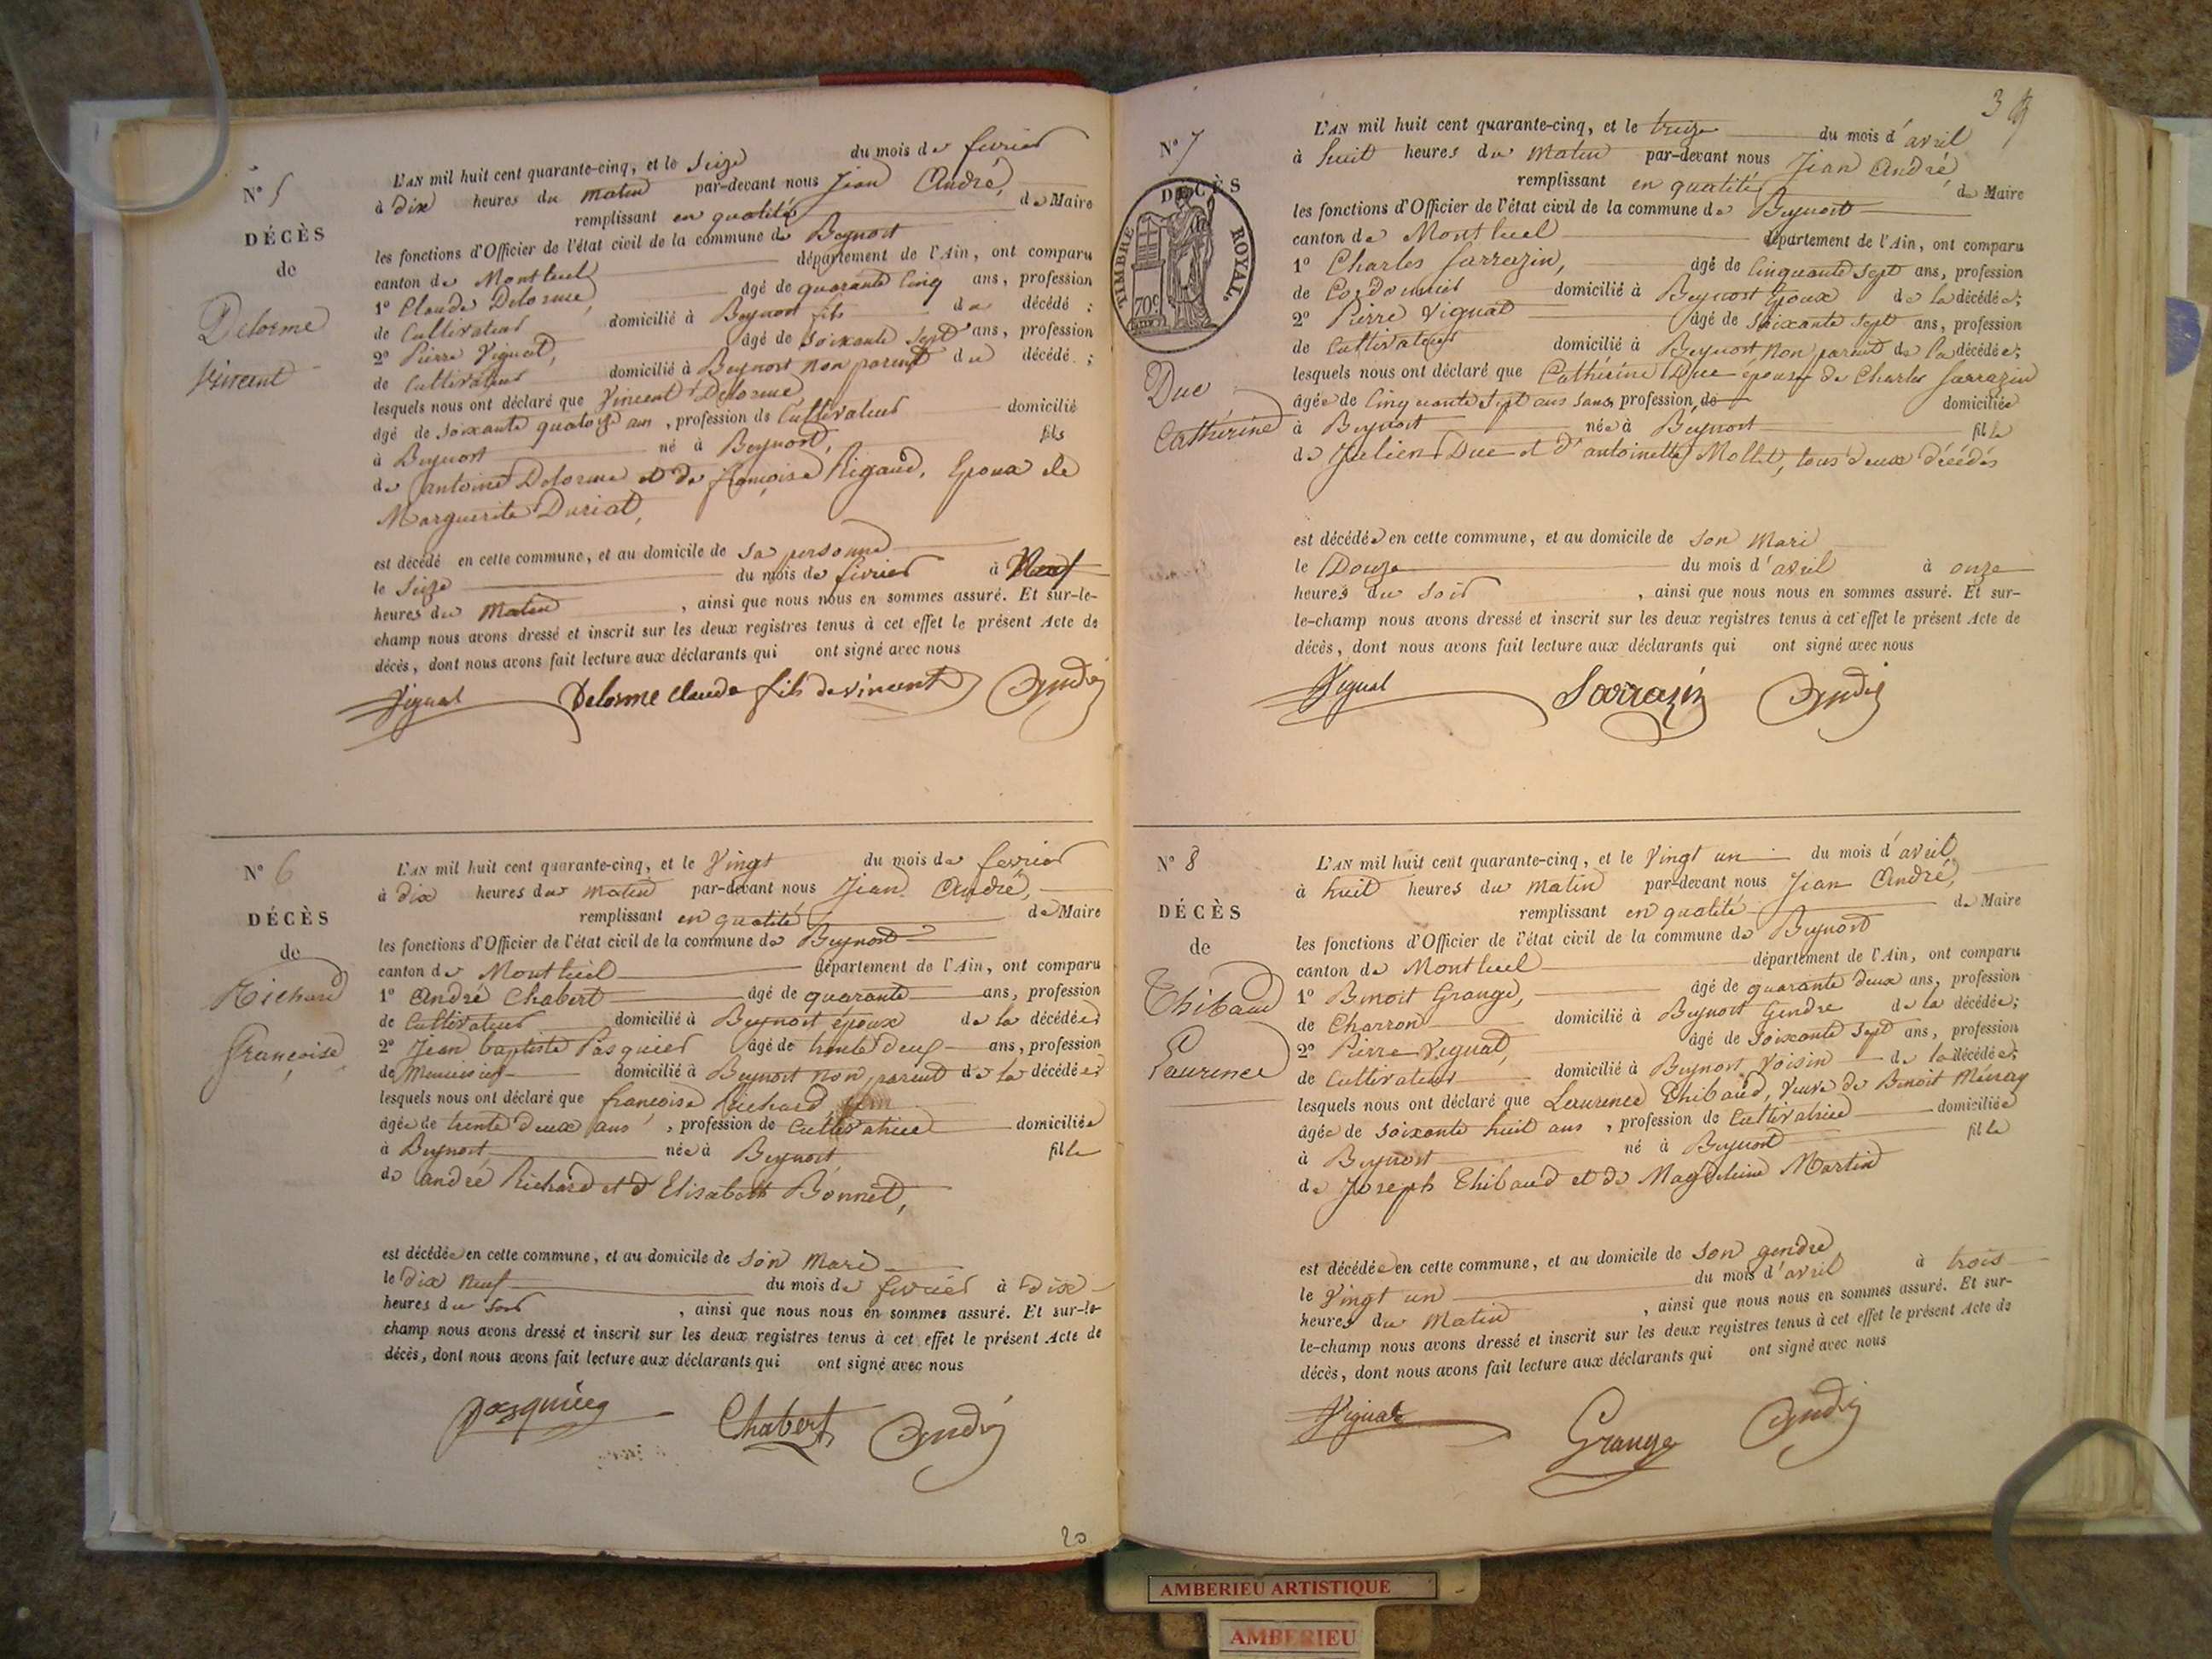 N° 5
DÉCÈS
de
Delorme
Vincent
L'AN mil huit cent quarante-cinq, et le Seize du mois de fevrier
à dix heures du matin par-devant nous Jean André,
remplissant en qualité de Maire
les fonctions d'Officier de l'état civil de la commune de Beynost
canton de Montluel département de l'Ain, ont comparu
1° Claude Delorme, âgé de quarante Cinq ans, profession
de Cultivateur domicilié à Beynost fils du décédé ;
2° Pierre Vignat, âgé de Soixante Sept ans, profession
de Cultivateur domicilié à Beynost non parent du décédé ;
lesquels nous ont déclaré que Vincent Delorme
âgé de Soixante quatorze ans , profession de Cultivateur domicilié
à Beynost né à Beynost, fils
de antoine Delorme et de françoise Rigaud, Epoux de
Marguerite Duriat,
est décédé en cette commune, et au domicile de sa personne
le Seize du mois de fevrier à Neuf
heures du Matin , ainsi que nous nous en sommes assuré. Et sur-le-
champ nous avons dressé et inscrit sur les deux registres tenus à cet effet le présent Acte de
décès, dont nous avons fait lecture aux déclarants qui ont signé avec nous
Vignat Delorme claude fils de vincent André
N° 6
DÉCÈS
de
Richard
françoise
L'AN mil huit cent quarante-cinq, et le Vingt du mois de fevrier
à dix heures du matin par-devant nous Jean André,
remplissant en qualité de Maire
les fonctions d'Officier de l'état civil de la commune de Beynost
canton de Montluel département de l'Ain, ont comparu
1° André Chabert âgé de quarante ans, profession
de Cultivateur domicilié à Beynost époux de la décédée
2° Jean baptiste Pasquier âgé de trente deux ans, profession
de Menuisier domicilié à Beynost non parent de la décédée
lesquels nous ont déclaré que françoise Richard
âgée de trente deux ans , profession de Cultivatrice domiciliée
à Beynost née à Beynost fille
de andré Richard et d'Elisabeth Bonnet,
est décédée en cette commune, et au domicile de son Mari
le dix Neuf du mois de fevrier à dix
heures du soir , ainsi que nous nous en sommes assuré. Et sur-le-
champ nous avons dressé et inscrit sur les deux registres tenus à cet effet le présent Acte de
décès, dont nous avons fait lecture aux déclarants qui ont signé avec nous
Pasquier Chabert André
20
3
N° 7
DÉCÈS
TIMBRE ROYAL
70c
Duc
Catherine
L'AN mil huit cent quarante-cinq, et le treize du mois d'avril
à huit heures du matin par-devant nous Jean André
remplissant en qualité de Maire
les fonctions d'Officier de l'état civil de la commune de Beynost
canton de Montluel département de l'Ain, ont comparu
1° Charles Sarrazin, âgé de Cinquante Sept ans, profession
de Cordonnier domicilié à Beynost Epoux de la décédée;
2° Pierre Vignat âgé de Soixante Sept ans, profession
de Cultivateur domicilié à Beynost non parent de la décédée;
lesquels nous ont déclaré que Catherine Duc épouse de Charles Sarrazin
âgée de Cinquante Sept ans sans profession de domiciliée
à Beynost née à Beynost fille
de Julien Duc et d'antoinette Mollet, tous deux décédés
est décédée en cette commune, et au domicile de son Mari
le Douze du mois d'avril à onze
heures du soir , ainsi que nous nous en sommes assuré. Et sur-
le-champ nous avons dressé et inscrit sur les deux registres tenus à cet effet le présent Acte de
décès, dont nous avons fait lecture aux déclarants qui ont signé avec nous
Vignat Sarrazin André
N° 8
DÉCÈS
de
Thibaud
Laurence
L'AN mil huit cent quarante-cinq, et le Vingt un du mois d'avril
à huit heures du Matin par-devant nous Jean André,
remplissant en qualité de Maire
les fonctions d'Officier de l'état civil de la commune de Beynost
canton de Montluel département de l'Ain, ont comparu
1° Benoit Grange, âgé de quarante deux ans, profession
de Charron domicilié à Beynost Gendre de la décédée;
2° Pierre Vignat, âgé de Soixante Sept ans, profession
de Cultivateur domicilié à Beynost Voisin de la décédée;
lesquels nous ont déclaré que Laurence Thibaud, Veuve de Benoit
âgée de Soixante huit ans , profession de Cultivatrice domiciliée
à Beynost né à Beynost fille
de Joseph Thibaud et de Magdeleine Martin
est décédée en cette commune, et au domicile de son gendre
le Vingt un du mois d'avril à trois
heures du Matin , ainsi que nous nous en sommes assuré. Et sur-
le-champ nous avons dressé et inscrit sur les deux registres tenus à cet effet le présent Acte de
décès, dont nous avons fait lecture aux déclarants qui ont signé avec nous
Vignat Grange André
AMBERIEU ARTISTIQUE
AMBERIEU